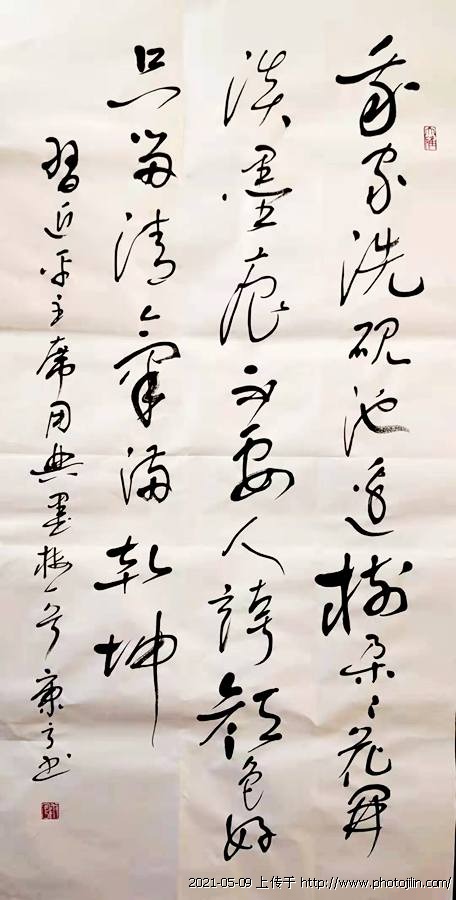 我家洗硯池邊樹朵々花開
淡墨痕不要人誇顏色好
只留清氣滿乾坤
習近平主席用典墨梅一首 康 书
2021-05-09 上传于 http://www.photojilin.com/